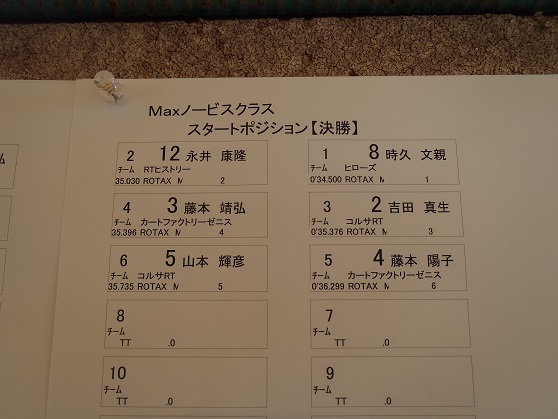 Maxノービスクラス
スタートポジション【決勝】
2 12 永井 康隆
チーム RTヒストリー
35.030 ROTAX M 2
1 8 時久 文親
チーム ヒローズ
0'34.500 ROTAX M 1
4 3 藤本 靖弘
チーム カートファクトリーゼニス
35.396 ROTAX M 4
3 2 吉田 真生
チーム コルサRT
0'35.376 ROTAX M 3
6 5 山本 輝彦
チーム コルサRT
35.735 ROTAX M 5
5 4 藤本 陽子
チーム カートファクトリーゼニス
0'36.299 ROTAX M 6
8
チーム
TT .0
7
チーム
TT .0
10
チーム
TT .0
9
チーム
TT .0